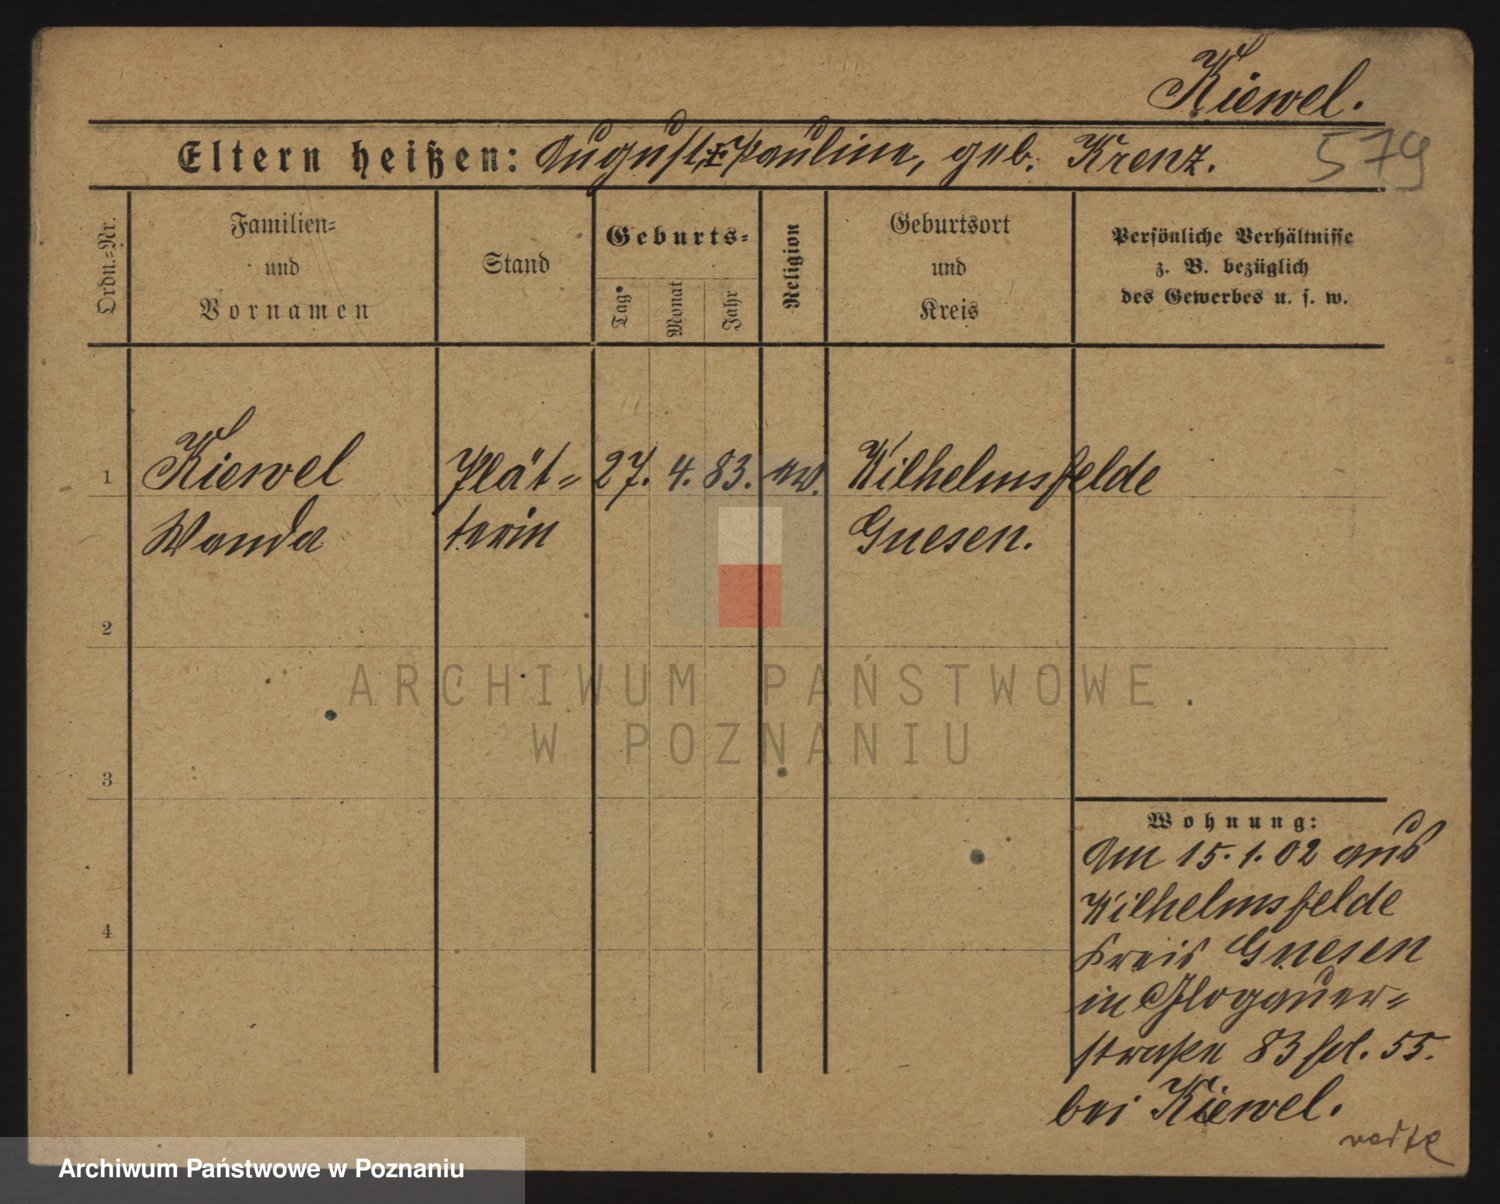 Kiewel.
Eltern heißen: August, & Pauline, geb. Krenz.
579
Ordn.-Nr.
Familien=
und
Vornamen
Stand
Geburts=
Tag
Monat
Jahr
Religion
Geburtsort
und
Kreis
Persönliche Verhältnisse
z. B. bezüglich
des Gewerbes u. s. w.
1 Kiewel Plät= 27. 4. 83. ev. Wilhelmsfelde
Wanda terin Gnesen.
2
ARCHIWUM PAŃSTWOWE
W POZNANIU
3
Wohnung:
Am 15. 1. 02 aus
Wilhelmsfelde
4
Kreis Gnesen
in Glogauer=
straße 83 55.
bei Kiewel.
Archiwum Państwowe w Poznaniu